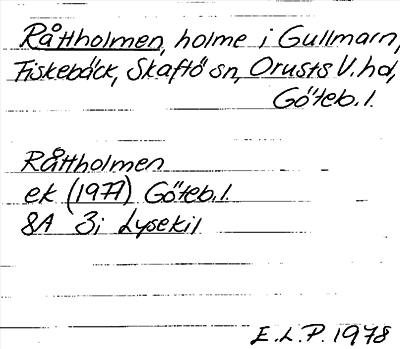 Råttholmen, holme i Gullmarn,
Fiskebäck, Skaftö sn, Orusts V. hd,
Göteb. l.
Råttholmen
ek (1977) Göteb. l.
8A 3i Lysekil
E. L. P. 1978